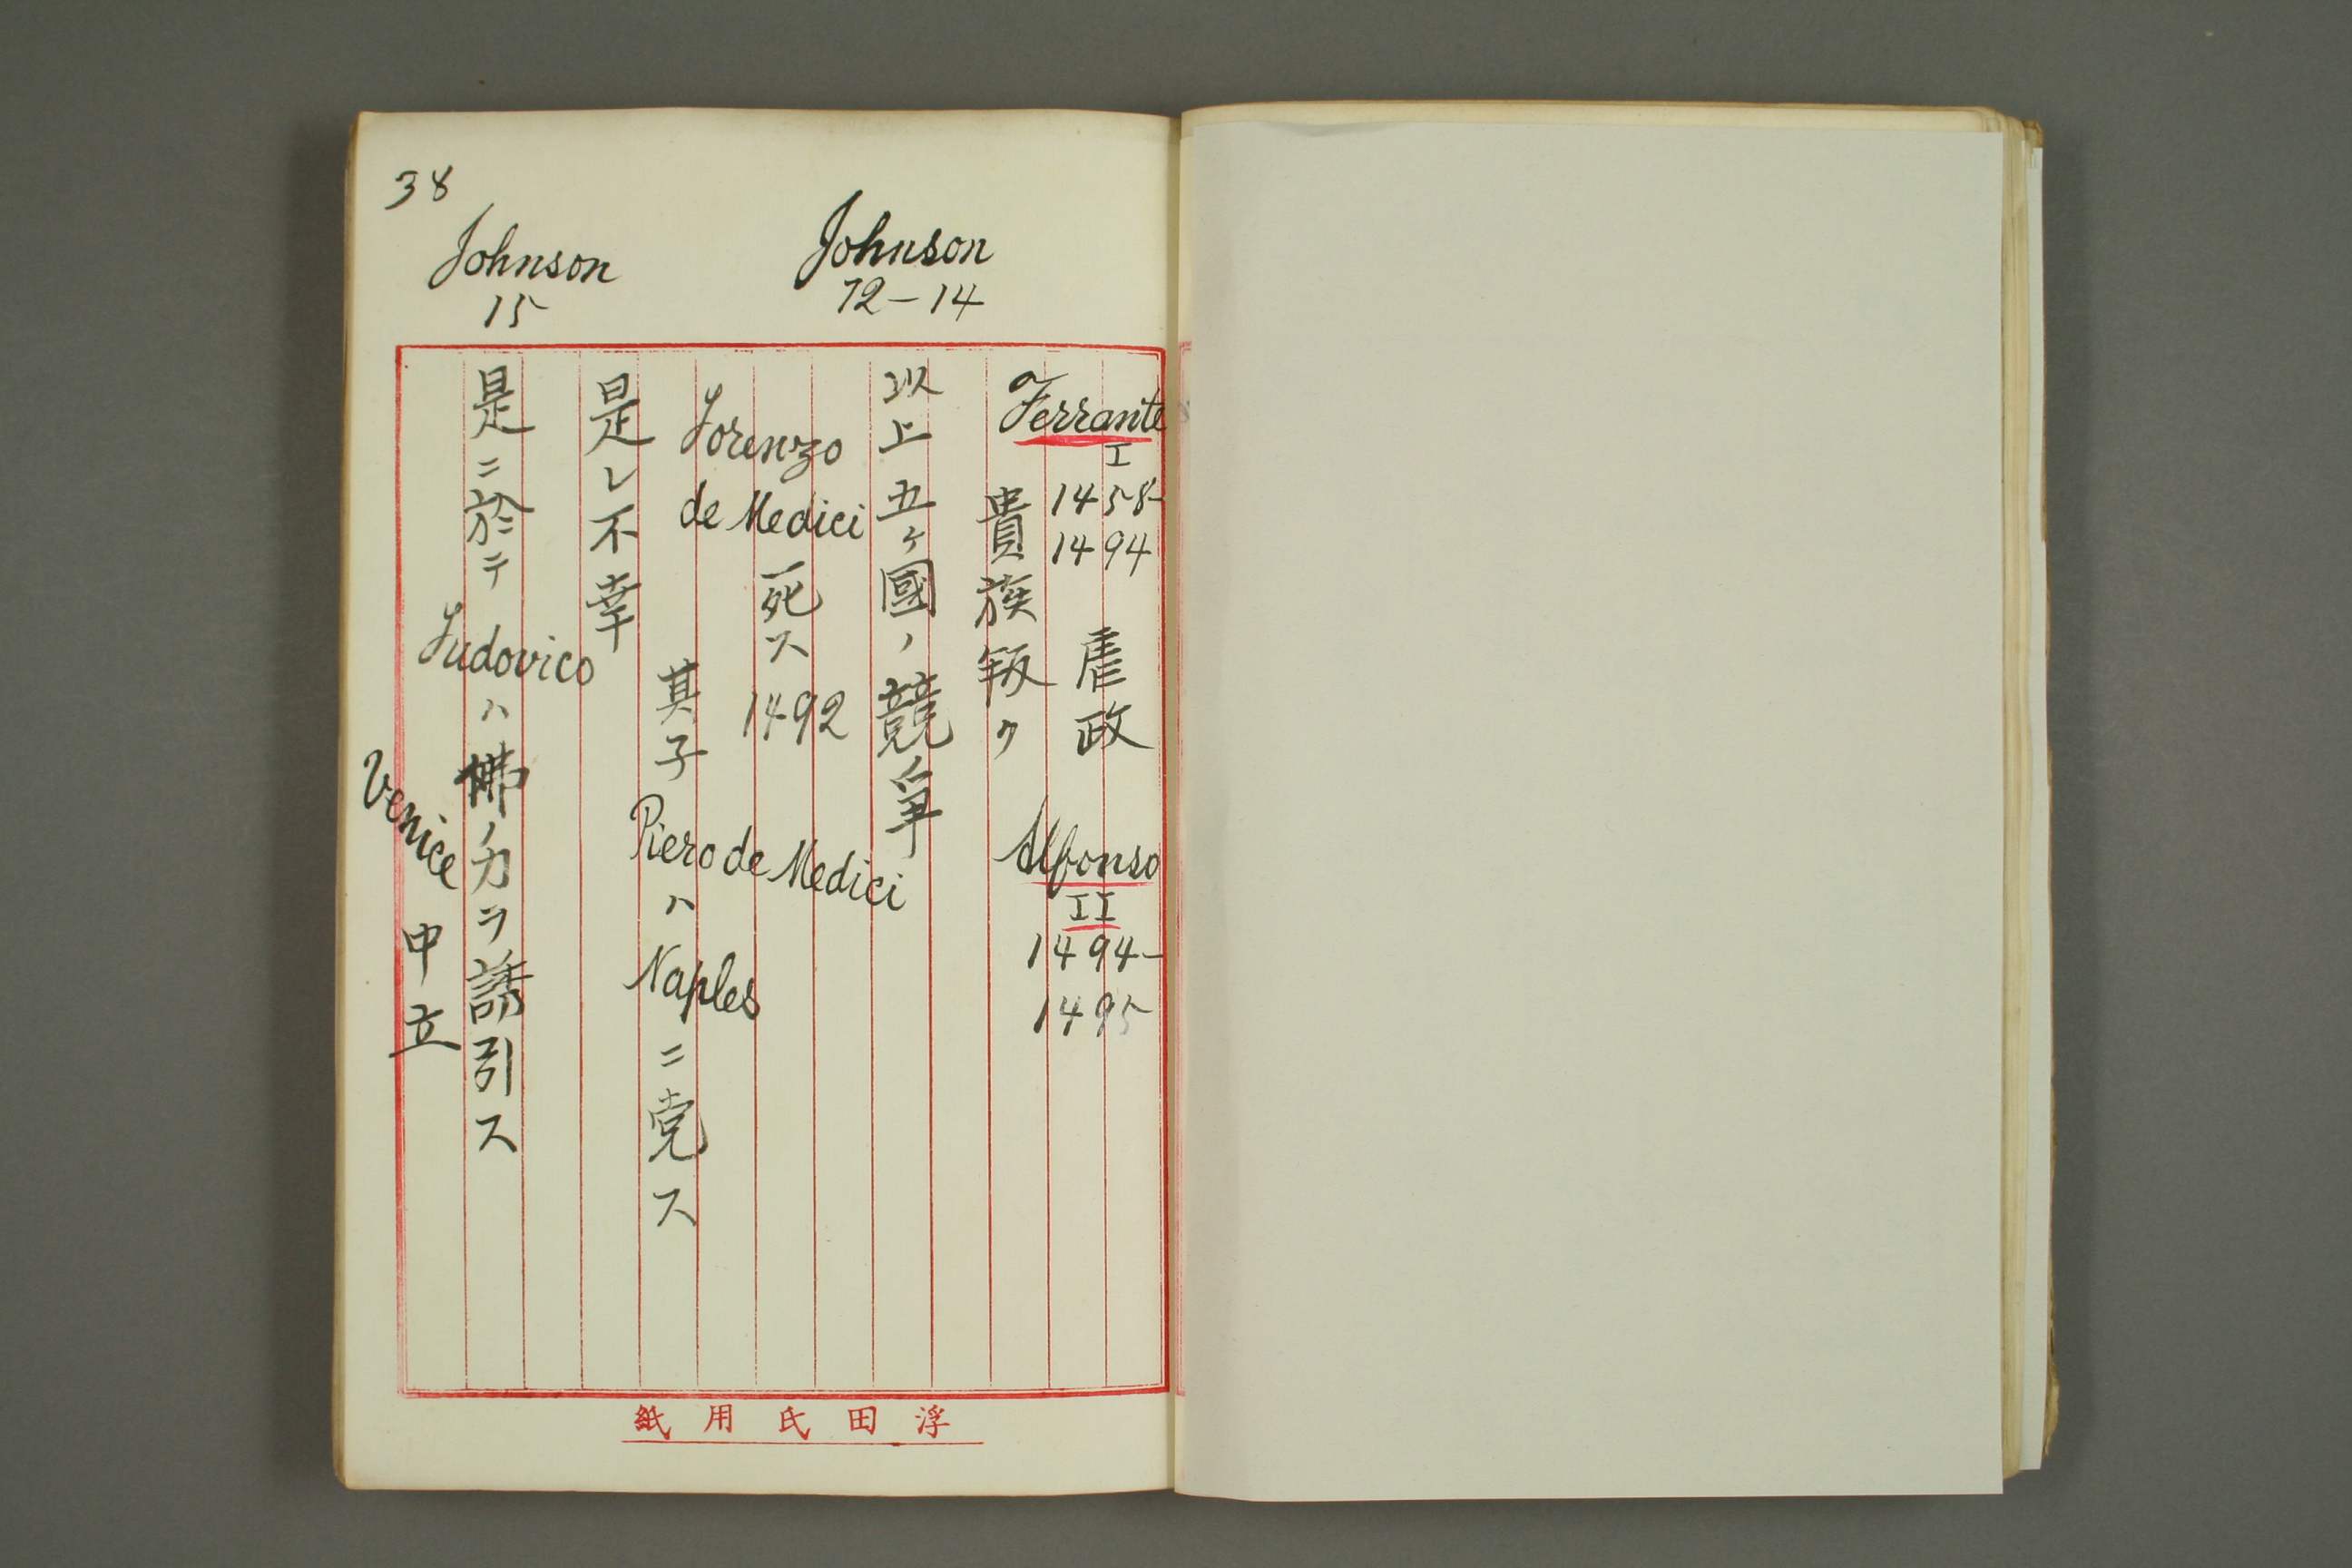 38
Johnson
72-14
Johnson
15
Ferrante
I
1458-
1494
虐政
Alfonso
II
1494-
1495
貴族叛ク
以上五ヶ國ノ競爭
Lorenzo
de Medici
死ス
1492
其子
Piero de Medici
ハ
Naples
ニ党ス
是レ不幸
是ニ於テ
Ludovico
ハ佛ノ力ヲ誘引ス
Venice
中立
浮田氏用紙